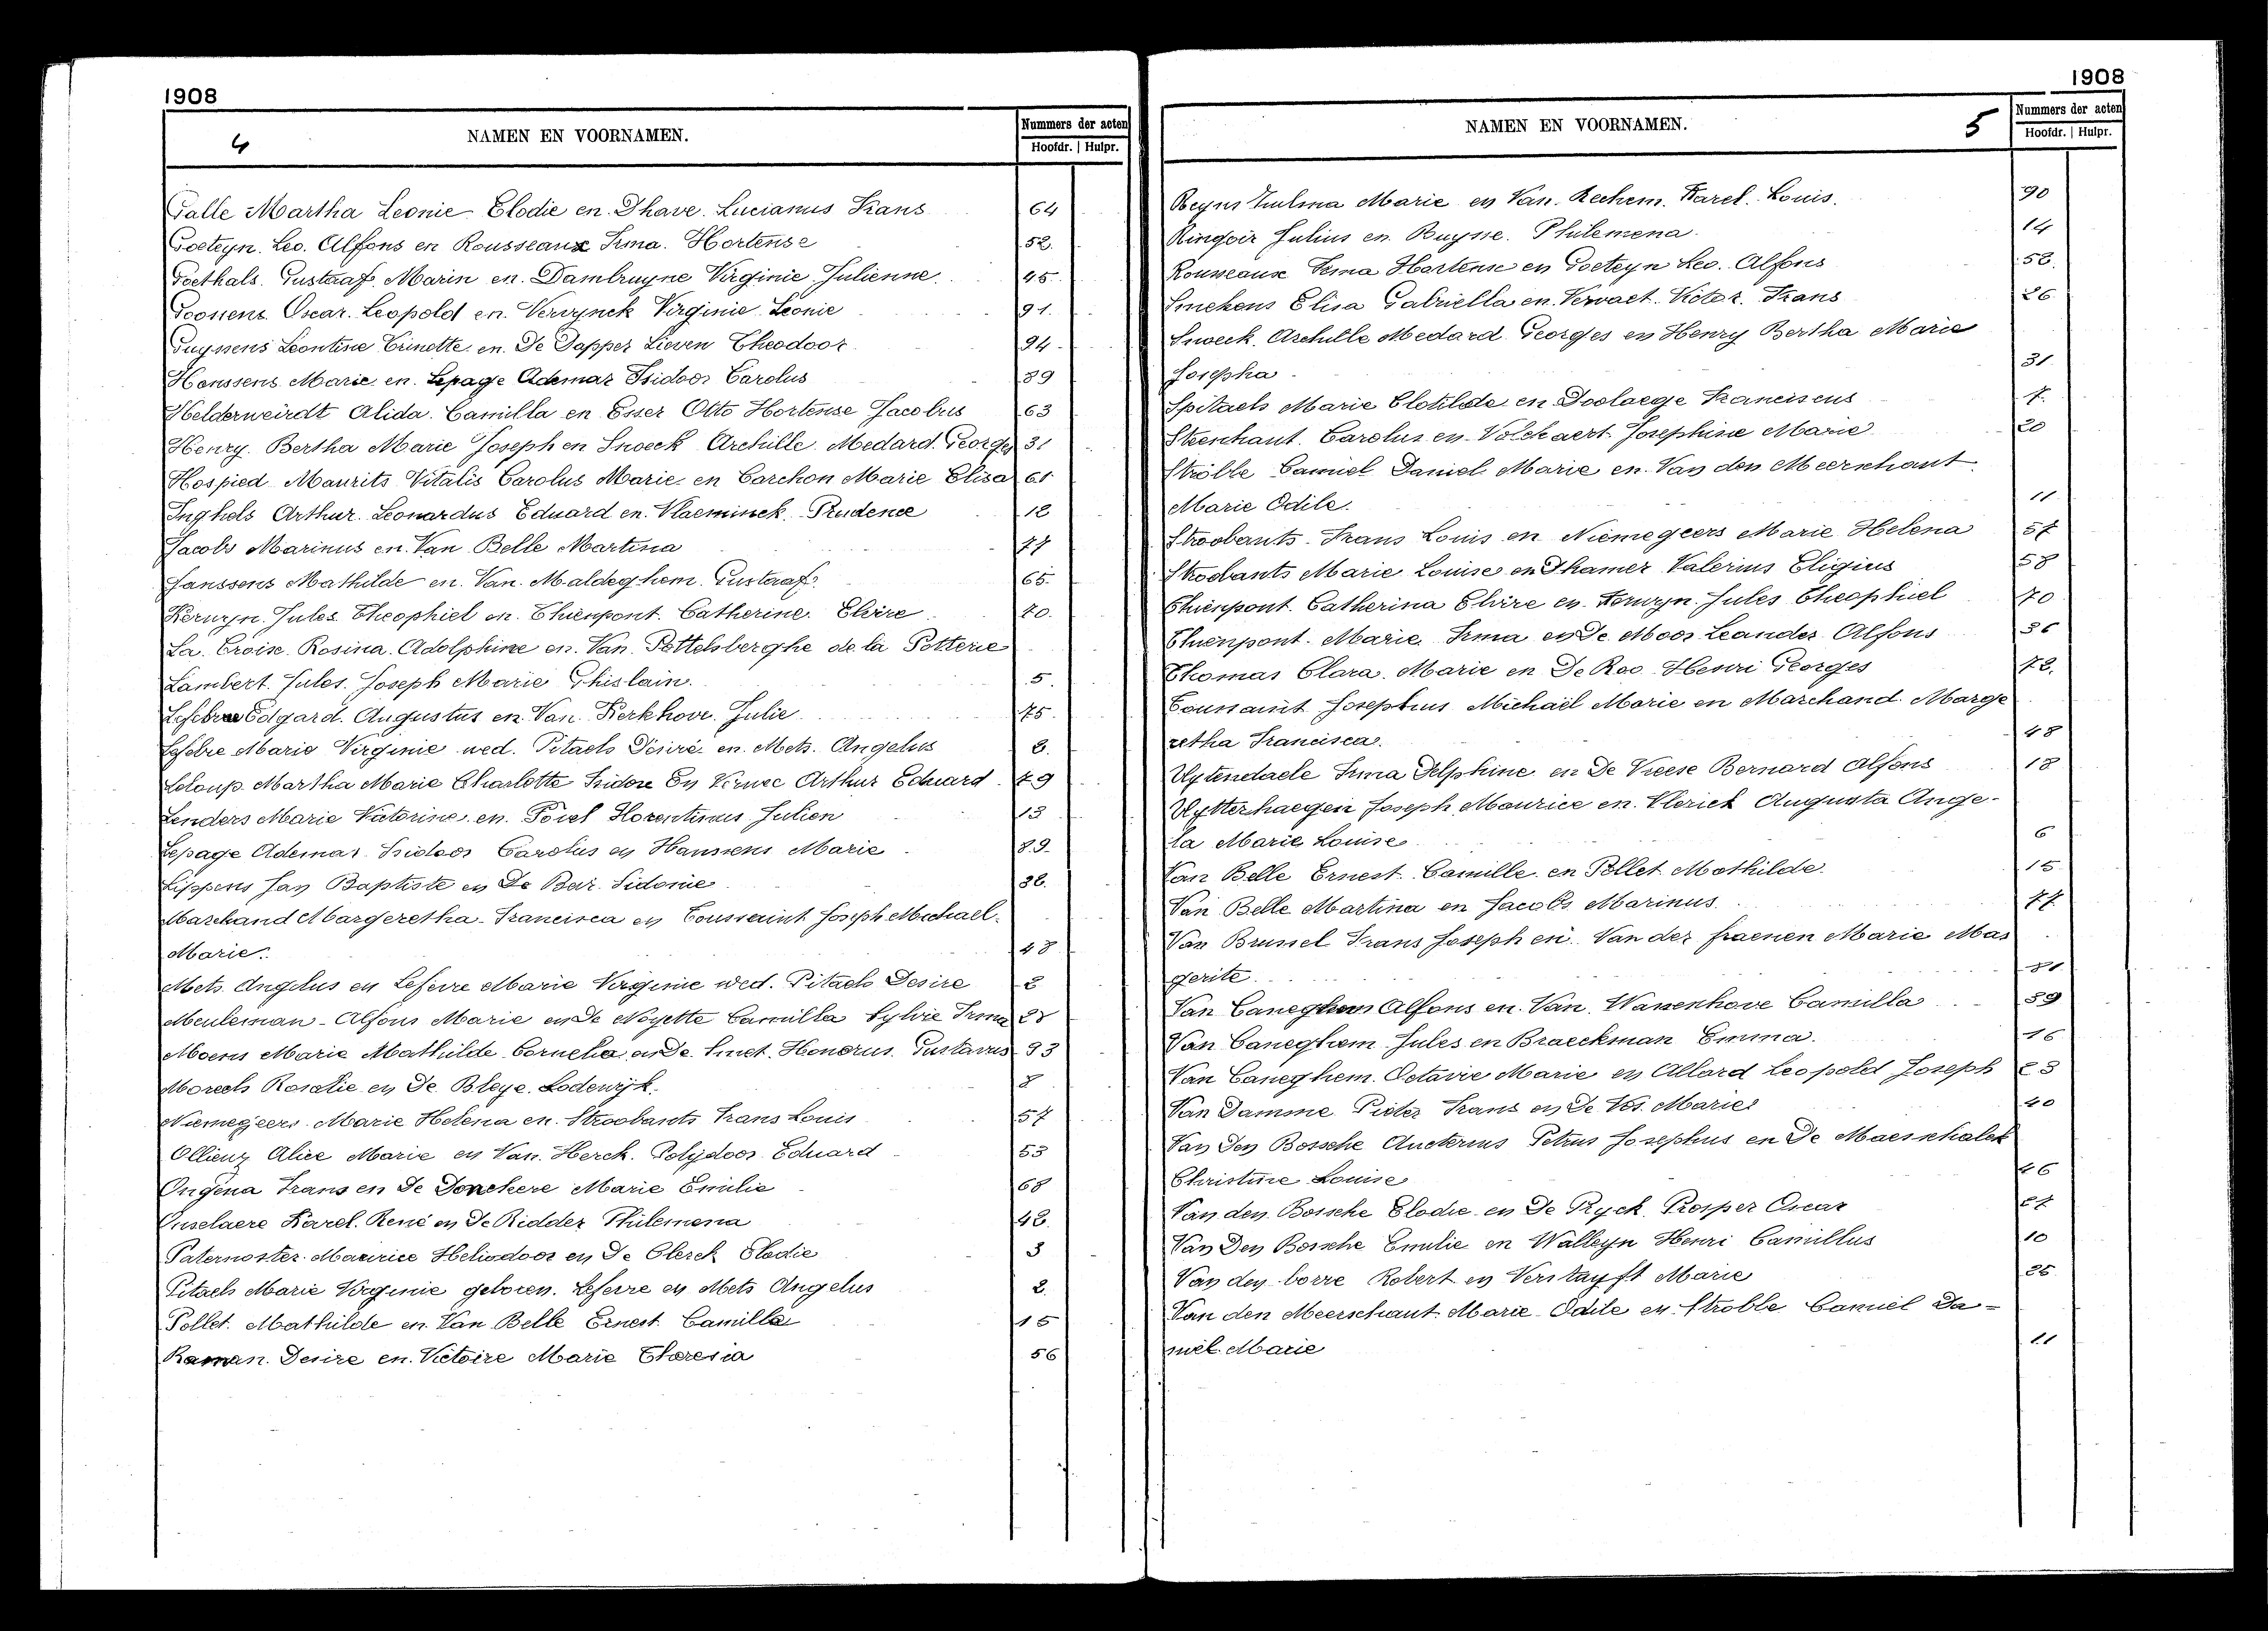 1908
4 NAMEN EN VOORNAMEN. Nummers der acten
Hoofdr. | Hulpr.
Galle Martha Leonie Elodie en Dhave. Lucianus Frans 64
Goeteyn. Leo. Alfons en Rousseaux Irma. Hortense 52.
Goethals. Gustaaf Marin en. Dambruyne Virginie Julienne. 45.
Goossens. Oscar. Leopold en. Verrynck Virginie Leonie 91.
Guyssens Leontine Erinette en. De Dapper Lieven Theodoor 94
Hanssens Marie en. Lepage Ademar Isidoor Carolus 89
Helderweirdt Alida. Camilla en Esser Otto Hortense Jacobus 63
Henry. Bertha Marie Joseph en Snoeck Archille Medard. Georges 31
Hospied Maurits Vitalis Carolus Marie en Carchon Marie Elisa 61
Inghels Arthur. Leonardus Eduard en. Vlaeminck. Prudence 12
Jacobs Marinus en. Van Belle Martina 77
Janssens Mathilde en Van. Maldeghem. Gustaaf. 65.
Kerwyn. Jules Theophiel en. Thienpont. Catherine. Elvire 70.
La. Croix. Rosina. Adolphine en. Van. Pottelsberghe de la Potterie
Lambert. Jules. Joseph Marie Ghislain. 5.
Lefebvre Edgard. Augustus en. Van. Kerkhove. Julie 75.
Lefebre Marie Virginie wed. Pitaels Désiré en. Mets. Angelus 2.
Leloup. Martha Marie Charlotte Isidore En Vernee Arthur Eduard 79
Lenders Marie Catorine en. Poiel Florentinus Julien 13
Lepage Ademar Isidoor Carolus en Hanssens Marie 89.
Lippens Jan Baptiste en De Bar. Sidonie 38.
Marchand Margeretha Francisca en Toussaint Joseph Michael.
Marie. 48
Mets. Angelus en Lefevre Marie Virginie wed. Pitaels Desire 2
Meuleman Alfons Marie en De Noyette Camilla Sylvie Irma 28
Moens Marie Mathilde Cornelia en De Smet. Honorus Gustavus 93
Moreels Rosalie en De Bleye. Lodewijk. 8
Niemegeers. Marie Helena en. Stroobants Frans Louis 57
Ollieuz Alice Marie en Van. Herck. Polydoor Eduard 53
Ongena Frans en De Donckere Marie Emilie 68
Onselaere Karel. René en De Ridder Philemena 42.
Paternoster Maurice Heliodoor en De Clerck Elodie 3
Pitaels Marie Virginie geboren. Lefevre en Mets Angelus 2.
Pollet. Mathilde en. Van Belle Ernest. Camille 15
Raman. Desire en. Victoire Marie Theresia 56
1908
NAMEN EN VOORNAMEN. 5 Nummers der acten
Hoofdr. | Hulpr.
Reyns Zulma Marie en Van. Rechem. Karel. Louis. 90
Ringoir Julius en. Buysse. Philemena 14
Rousseaux Irma Hortense en Goeteyn Leo. Alfons 52.
Smekens Elisa Gabriella en. Vervaet. Victor. Frans 26
Snoeck. Archille Medard Georges en Henry Bertha Marie
Josepha 31
Spitaels Marie Clotilde en Doolaege Franciscus 7.
Steenhaut. Carolus en Volckaert Josephine Marie 20
Strolle Camiel Daniel Marie en. Van den Meerschaut
Marie Odile. 11
Stroobants. Frans Louis en Niemegeers Marie Helena 57
Stroobants Marie Louise en Dhamer Valerius Eligius 58
Thienpont. Catherina Elvire en. Kerwyn. Jules Theophiel 70
Thienpont. Marie. Irma en De Moor Leander Alfons 36
Thomas Clara. Marie en De Roo Henri Georges 72.
Toussaint Josephus Michaël Marie en Marchand. Marge
retha Francisca. 48
Uytendaele Irma Delphine en De Vreese Bernard Alfons 18
Uytterhaegen Joseph Maurice en. Clerick Augusta Ange-
la Marie Louise 6
Van Belle Ernest Camille. en Pollet Mathilde 15
Van Belle Martina en Jacobs Marinus. 77
Van Brussel Frans Joseph en. Van der fraenen Marie Mar
gerite 81
Van Caneghem Alfons en. Van. Wanenhove Camilla 59
Van Caneghem Jules en Braeckman Emma. 16
Van Caneghem. Octavie Marie en Allard Leopold Joseph 23
Van Damme Pieter Frans en De Vos. Marie 40
Van Den Bossche Aucterius Petrus Josephus en De Maesschalck
Christine Louise 46
Van den. Bossche Elodie en De Ryck. Prosper Oscar 27
Van Den Bossche Emilie en Walleyn Henri Camillus 10
Van den borre Robert en Verstuyft Marie 25
Van den Meerschaut. Marie Odile en. Strolle Camiel Da-
niël. Marie 11